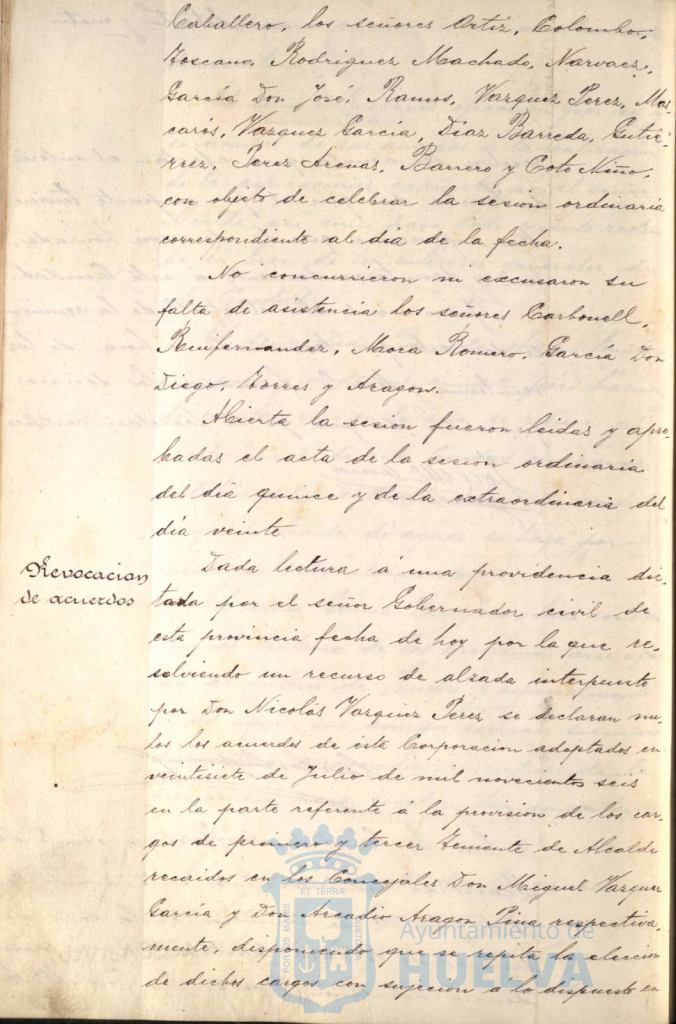 Caballero, los señores Ortiz, Colombo,
Toscano, Rodriguez Machado, Narvaez,
García Don José, Ramos, Vazquez Perez, Mas-
carós, Vazquez García, Diaz Barreda, Gutie-
rrez, Perez Arenas, Barrero y Coto Niño,
con objeto de celebrar la sesion ordinaria
correspondiente al dia de la fecha.
No concurrieron ni excusaron su
falta de asistencia los señores Carbonell,
Mora Romero, García Don
Diego, Torres y Aragon.
Abierta la sesion fueron leidas y apro-
badas el acta de la sesion ordinaria
del dia quince y de la extraordinaria del
día veinte
Revocacion
de acuerdos
Dada lectura á una providencia dic-
tada por el señor Gobernador civil de
esta provincia fecha de hoy por la que re-
solviendo un recurso de alzada interpuesto
por Don Nicolás Vazquez Perez se declaran nu-
los los acuerdos de ésta Corporacion adoptados en
veintisiete de Julio de mil novecientos seis
en la parte referente á la provision de los car-
gos de primero y tercer Teniente de Alcalde
recaidos en los Concejales Don Miguel Vazquez
García y Don Arcadio Aragon Pina respectiva-
mente, disponiendo que se repita la eleccion
de dichos cargos con sujecion a lo dispuesto en
ET TERRÆ
PORTUS MARIS
CUSTODIA
Ayuntamiento de
HUELVA